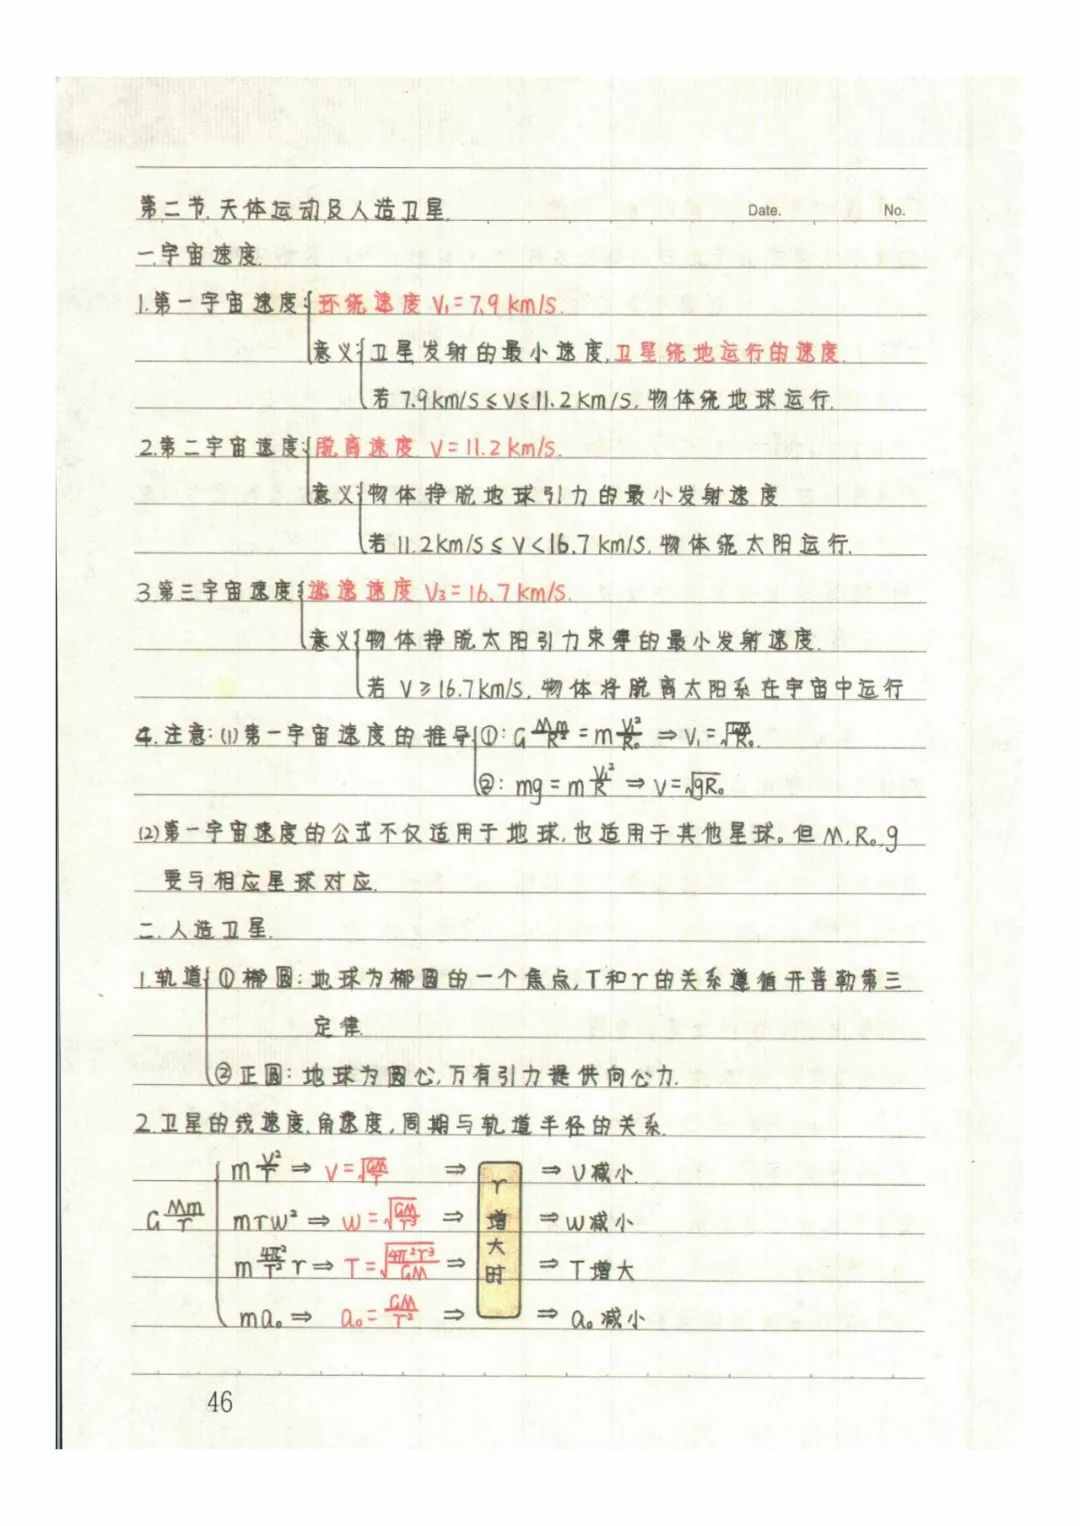 第二节.天体运动及人造卫星.
Date. No.
一.宇宙速度.
1.第一宇宙速度:{环绕速度 V₁=7.9km/s.
意义:{卫星发射的最小速度,卫星绕地运行的速度.
若 7.9km/s≤V≤11.2km/s,物体绕地球运行.
2.第二宇宙速度:{脱离速度 V=11.2km/s.
意义:{物体挣脱地球引力的最小发射速度
若 11.2km/s≤V<16.7km/s,物体绕太阳运行.
3.第三宇宙速度:{逃逸速度 V₃=16.7km/s.
意义:{物体挣脱太阳引力束缚的最小发射速度.
若 V≥16.7km/s,物体将脱离太阳系在宇宙中运行
4.注意:(1)第一宇宙速度的推导{①:G Mm/R² = m V₁²/R₀ ⇒ V₁=√
②: mg = m V₁²/R ⇒ V=√gR₀
(2)第一宇宙速度的公式不仅适用于地球,也适用于其他星球。但M,R₀,g
要与相应星球对应.
二.人造卫星.
1.轨道{①椭圆:地球为椭圆的一个焦点,T和r的关系遵循开普勒第三
定律.
②正圆:地球为圆心,万有引力提供向心力.
2.卫星的线速度,角速度,周期与轨道半径的关系.
m V²/r ⇒ V=√GM/r ⇒ r ⇒ v减小.
G Mm/r { mrw² ⇒ w=√GM/r³ ⇒ 增 ⇒ w减小
m 4π²/T² r ⇒ T=√4π²r³/GM ⇒ 大时 ⇒ T增大
ma₀ ⇒ a₀= GM/r² ⇒ ⇒ a₀减小
46